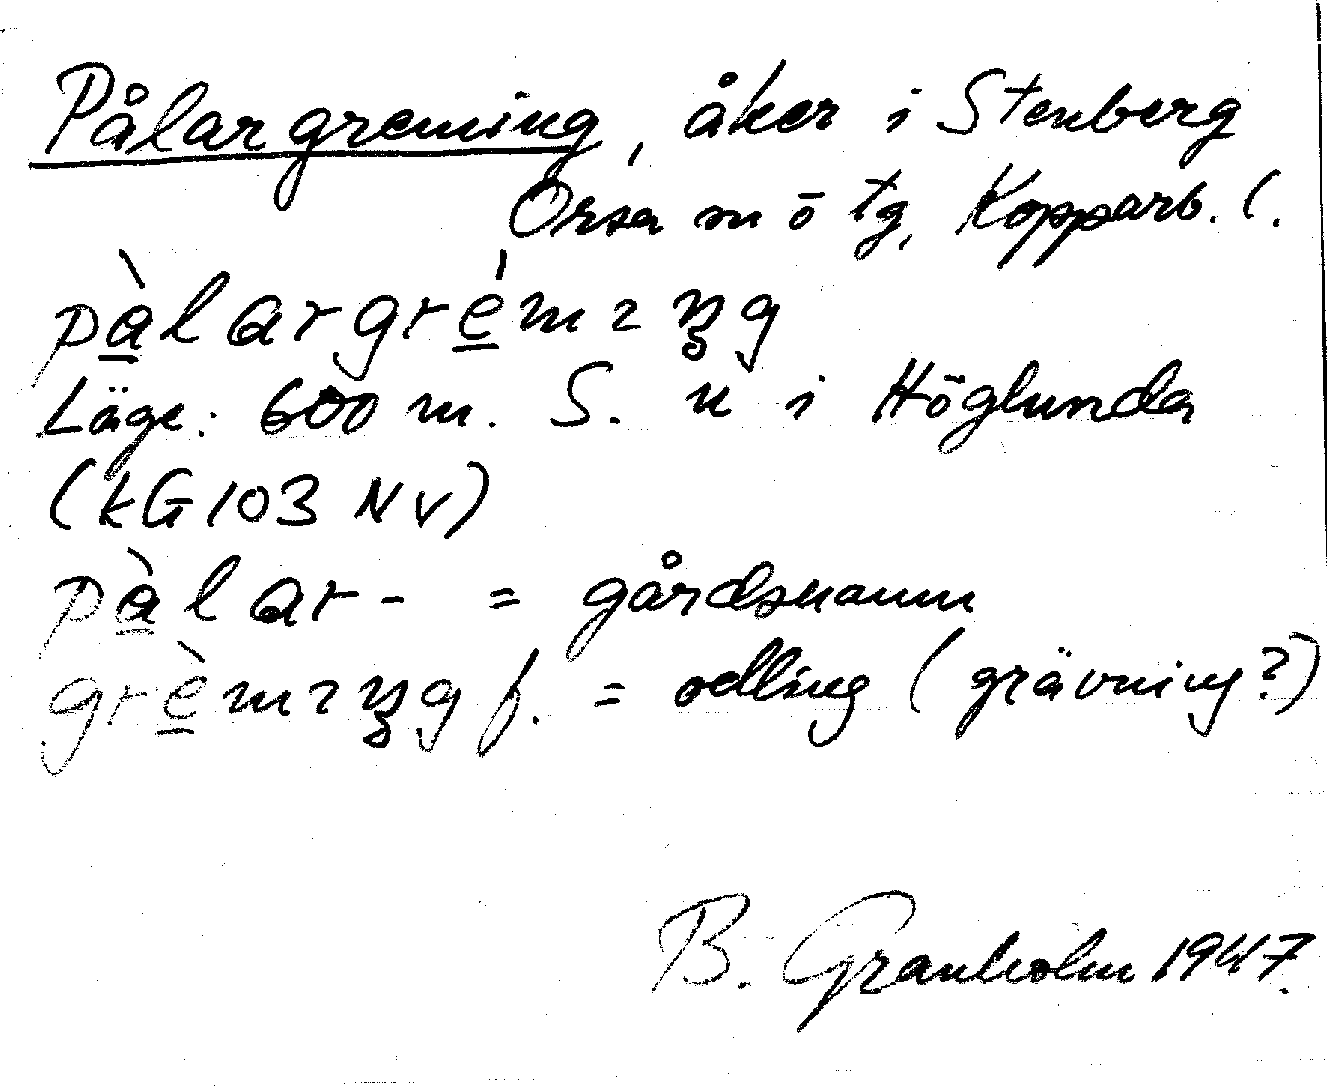 Pålargreming, åker i Stenberg
Orsa m ö tg, Kopparb. l.
pàlargrém ıŋg
Läge: 600 m. S. u i Höglunda
(kG103 NV)
pàlar- = gårdsnamn
grèmıŋg f. = odling (grävning?)
B. Granholm 1947.